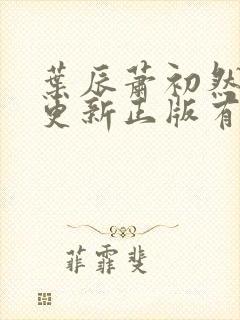 葉辰蕭初然
更新正版有
菲霏斐